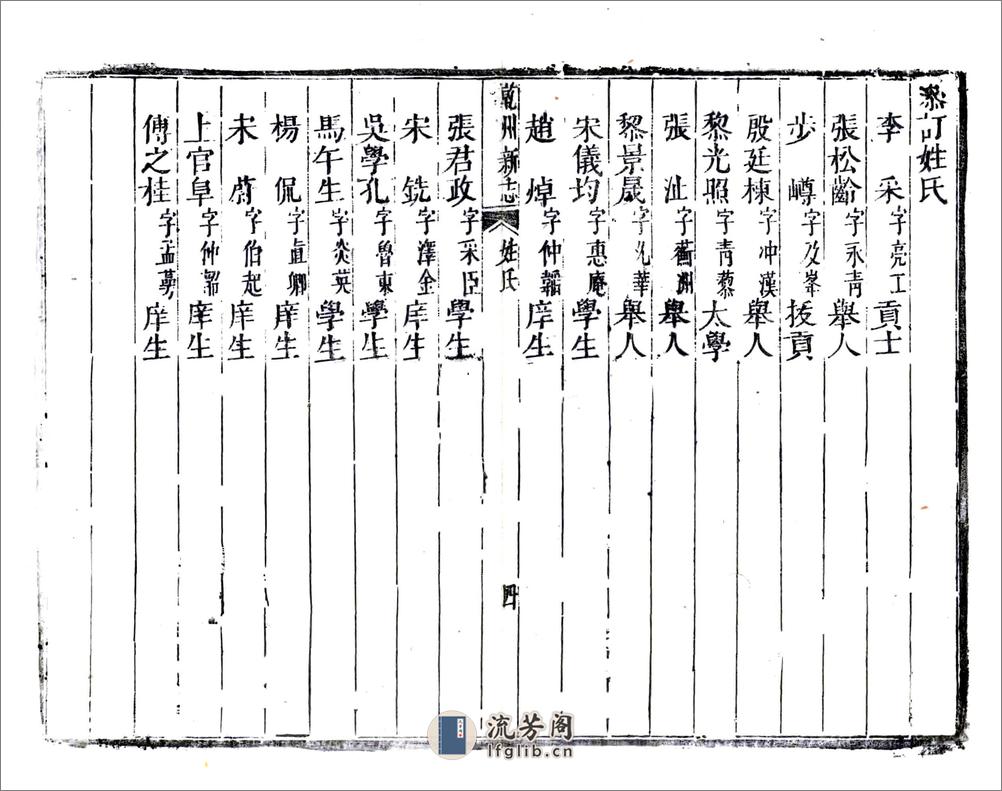 叅訂姓氏
李 采 字亮工 貢士
張松齡 字永靑 舉人
步 嶟 字及峯 拔貢
殷廷棟 字冲漢 舉人
黎光照 字靑藜 太學
張 沚 字蘅洲 舉人
黎景晟 字九華 舉人
宋儀均 字惠庵 學生
趙 焯 字仲韜 庠生
乾州新志 姓氏 四
張君政 字采臣 學生
宋 銑 字澤金 庠生
吳學孔 字魯東 學生
馬午生 字炎英 學生
楊 侃 字直卿 庠生
未 蔚 字伯起 庠生
上官阜 字仲 庠生
傅之桂 字孟夢 庠生
流芳阁
lfglib.cn